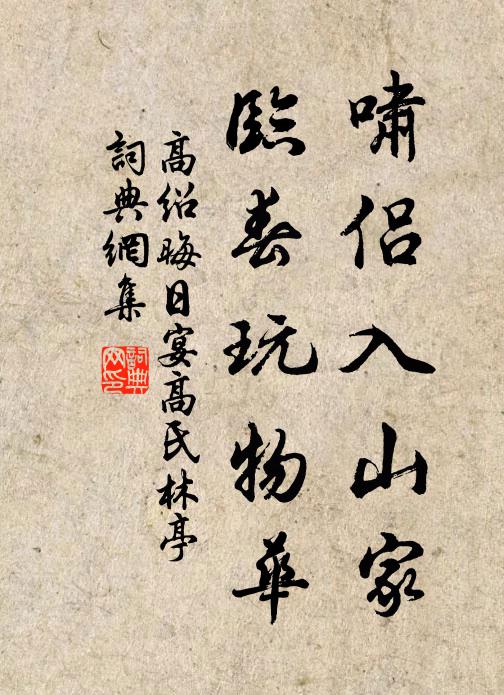 嘯侶入山家
臨春玩物華
高紹晦日宴高氏林亭
詞典網集
詞典网印